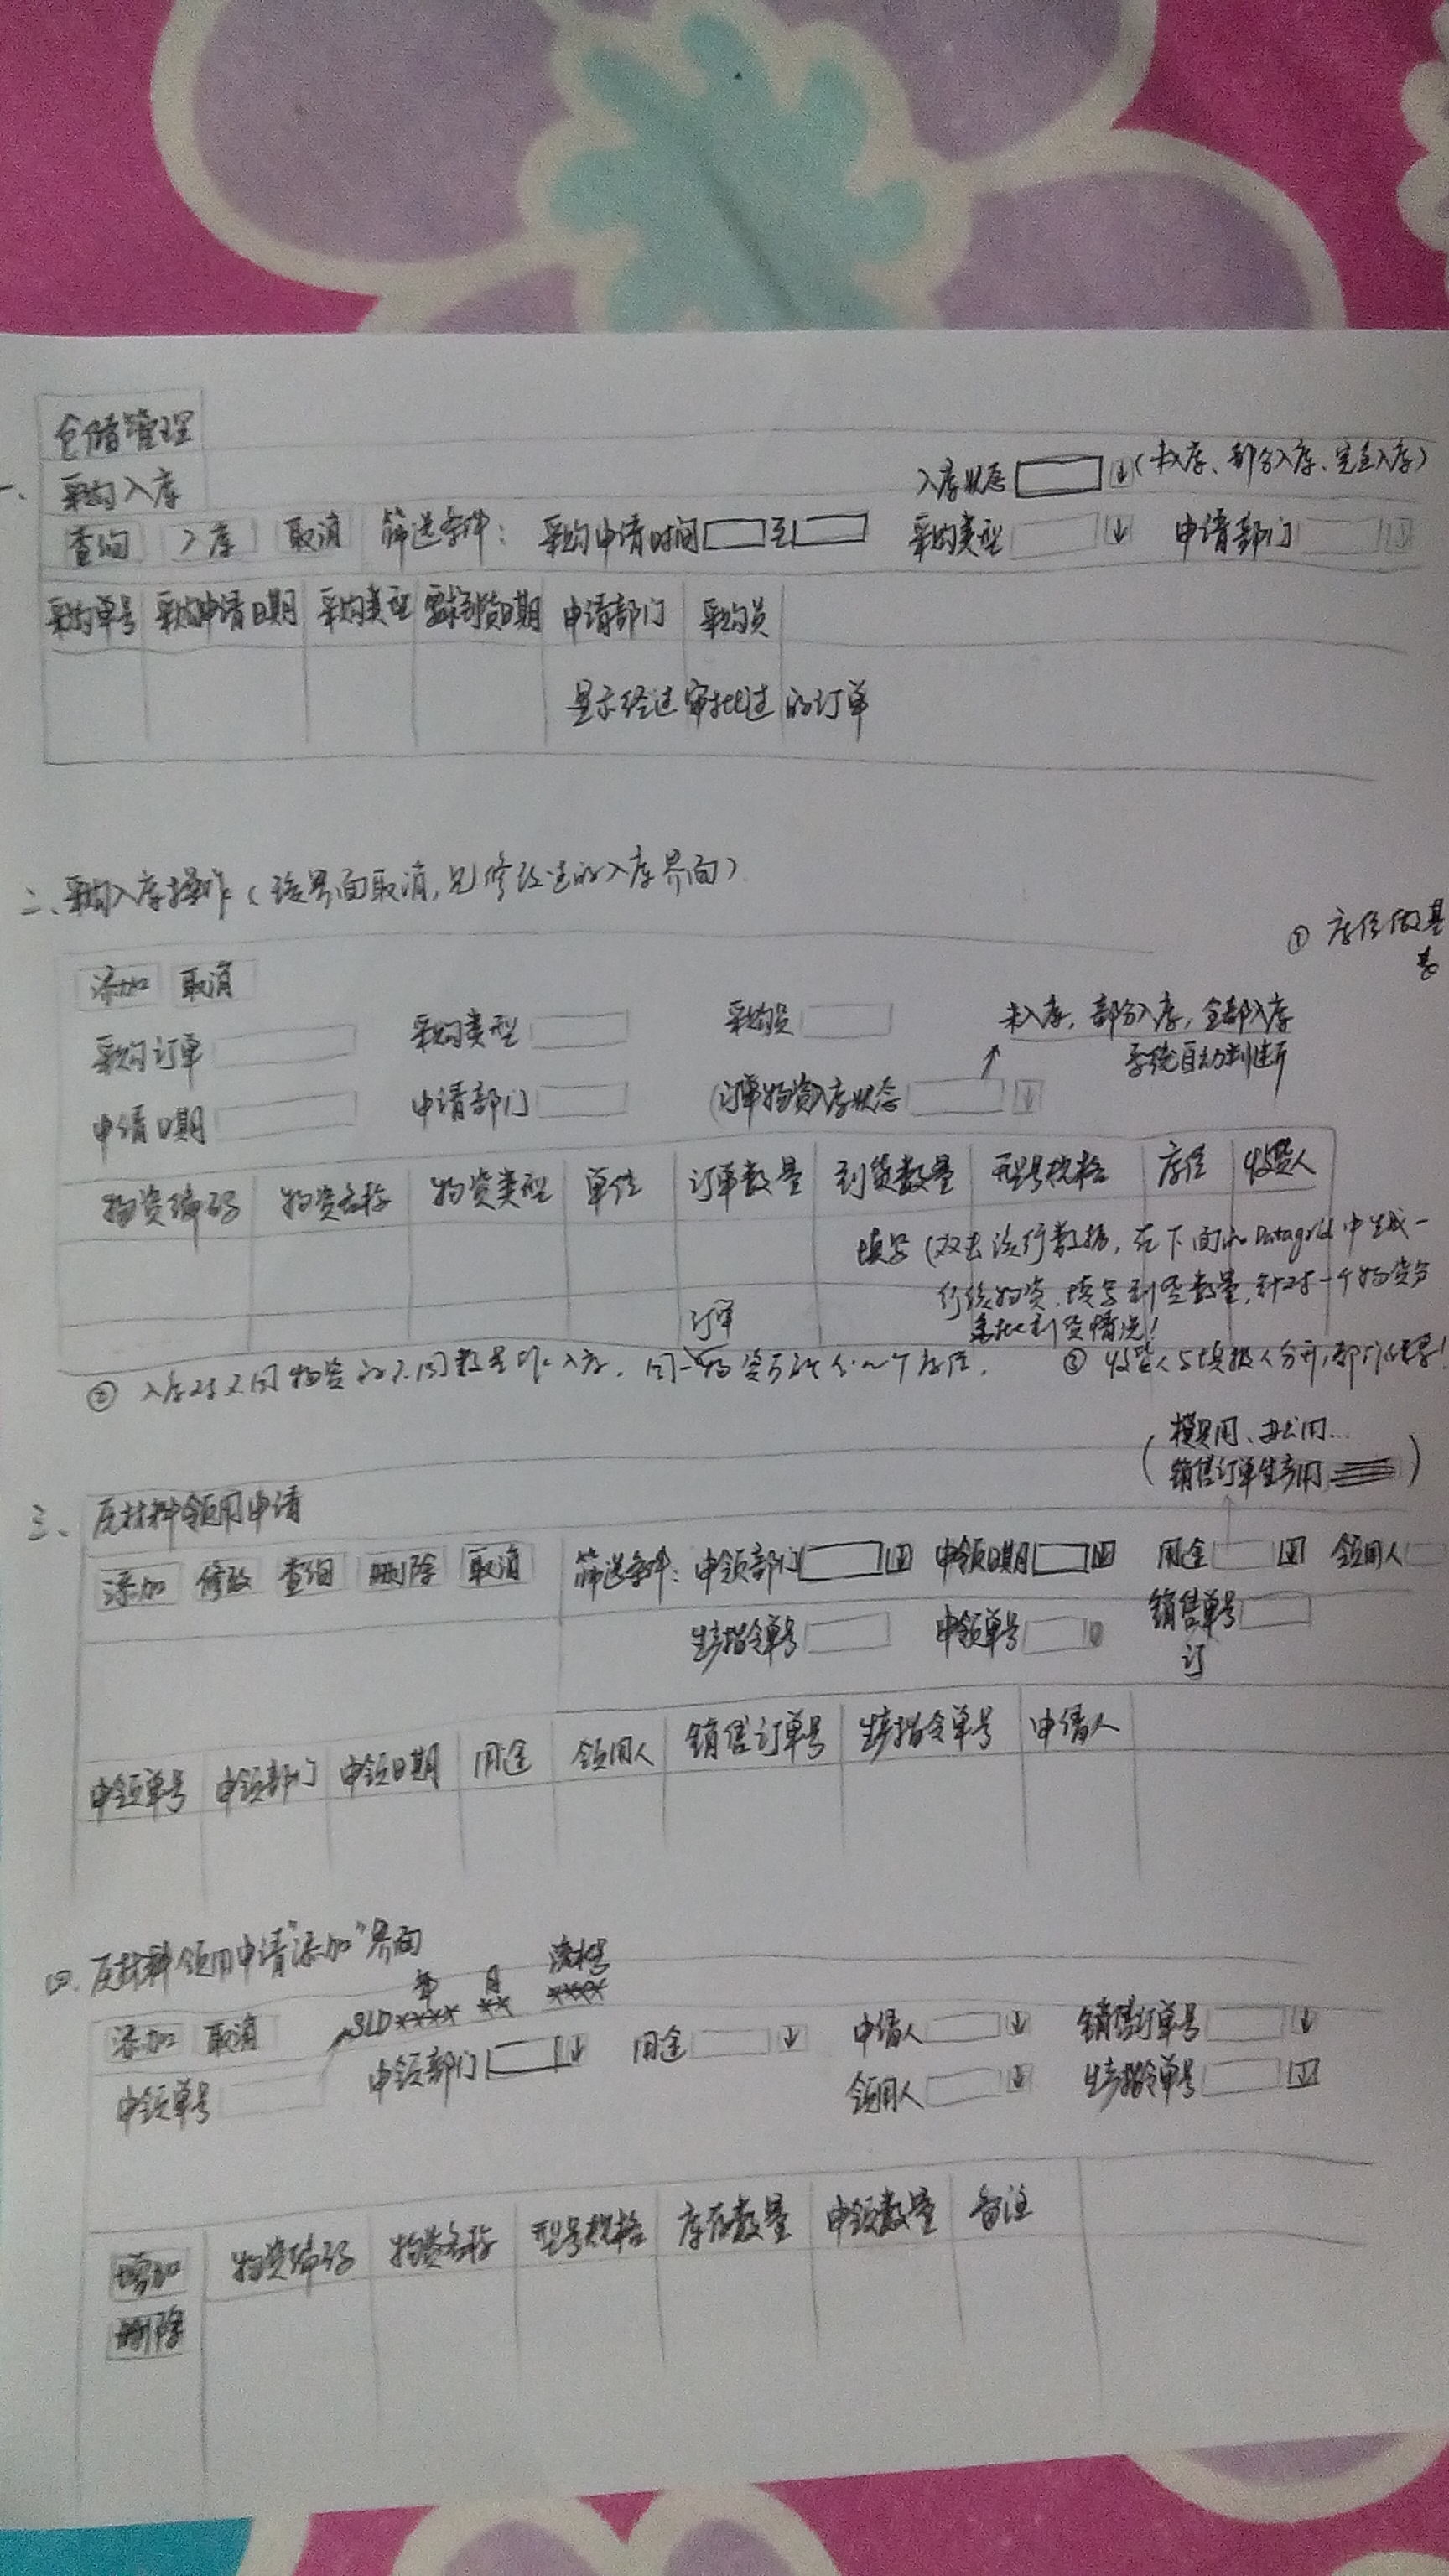 仓储管理
一、采购入库
入库状态 ↓(未入库、部分入库、完全入库)
查询 入库 取消 筛选条件: 采购申请时间 至 采购类型 ↓ 申请部门 ↓
采购单号 采购申请日期 采购类型 要求到货日期 申请部门 采购员
显示经过审批过的订单
二、采购入库操作(该界面取消,见修改过的入库界面)
① 库位做基
添加 取消
采购订单 采购类型 采购员 未入库,部分入库,全部入库
系统自动判断
申请日期 申请部门 (订单物资入库状态 ↓
物资编码 物资名称 物资类型 单位 订单数量 到货数量 型号规格 库位 收货人
填写(双击该行数据,在下面的Datagrid中生成一
行该物资,填写到货数量,针对一个物资分
多批到货情况!
订单
② 入库对不同物资的不同数量 入库,同一物资 个库位。 ③ 收货人与填报人分开,部门
(模具用、办公用...
销售订单生产用 )
三、原材料领用申请
添加 修改 查询 删除 取消 筛选条件: 申领部门 ↓ 申领日期 ↓ 用途 ↓ 领用人
生产指令单号 申领单号 销售单号
订
申领单号 申领部门 申领日期 用途 领用人 销售订单号 生产指令单号 申请人
四、原材料领用申请“添加”界面
年 月 流水号
SLD**** ** ****
添加 取消
申领单号 申领部门 ↓ 用途 ↓ 申请人 ↓ 销售订单号 ↓
领用人 ↓ 生产指令单号 ↓
增加 物资编码 物资名称 型号规格 库存数量 申领数量 备注
删除